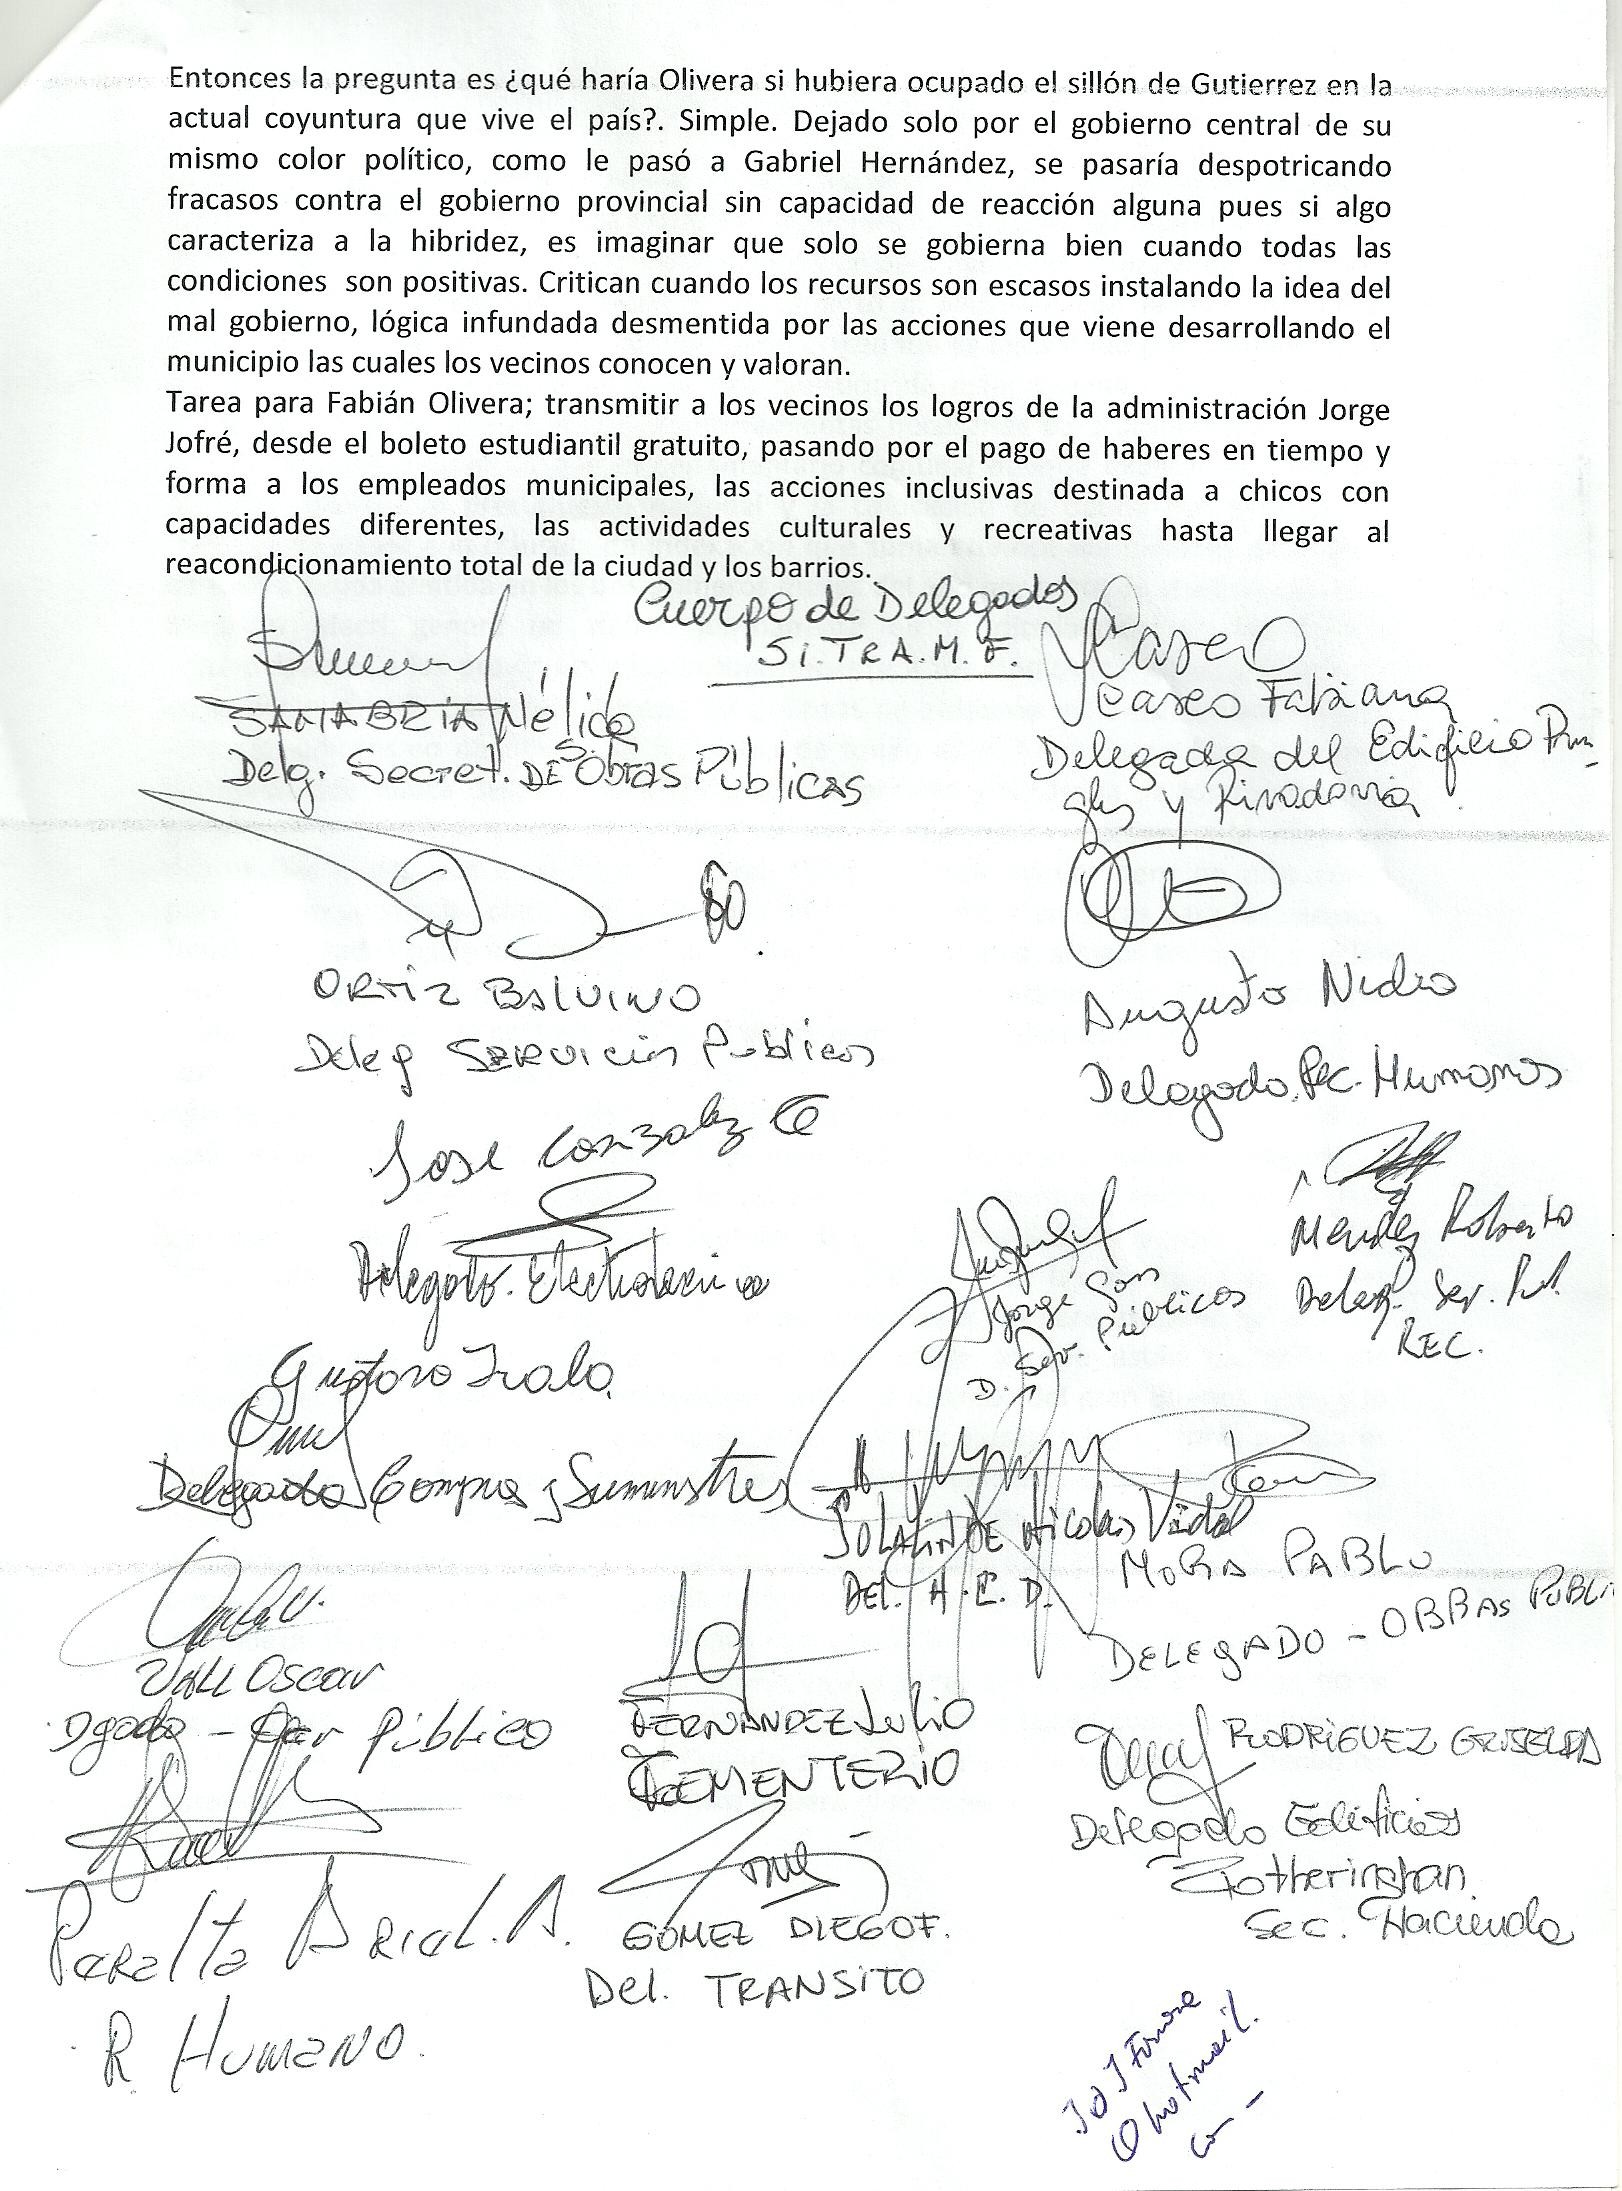 Entonces la pregunta es ¿qué haría Olivera si hubiera ocupado el sillón de Gutierrez en la
actual coyuntura que vive el país?. Simple. Dejado solo por el gobierno central de su
mismo color político, como le pasó a Gabriel Hernández, se pasaría despotricando
fracasos contra el gobierno provincial sin capacidad de reacción alguna pues si algo
caracteriza a la hibridez, es imaginar que solo se gobierna bien cuando todas las
condiciones son positivas. Critican cuando los recursos son escasos instalando la idea del
mal gobierno, lógica infundada desmentida por las acciones que viene desarrollando el
municipio las cuales los vecinos conocen y valoran.
Tarea para Fabián Olivera; transmitir a los vecinos los logros de la administración Jorge
Jofré, desde el boleto estudiantil gratuito, pasando por el pago de haberes en tiempo y
forma a los empleados municipales, las acciones inclusivas destinada a chicos con
capacidades diferentes, las actividades culturales y recreativas hasta llegar al
reacondicionamiento total de la ciudad y los barrios.
Cuerpo de Delegados
Si.TRA.M.F.
SANABRIA Nélida
Delg. Secret. DE Obras Públicas
Caseo Fabiana
Delegada del Edificio
y Rivadavia
ORTIZ BALVINO
Deleg SERVICIOS Publicos
Augusto Nidio
Delegado Rec. Humanos
Jose Gonzalez
Delegado. Electrotecnica
Mendez Roberto
Deleg. Ser. Pub.
REC.
Jorge
D. Serv. Públicos
Gustavo
Delegado Compras y Suministros
Nicolas Vidal
DEL. H.C.D.
MORA PABLO
DELEGADO - OBRAS PUBLI
VALL OSCAR
Dgado - Público
FERNANDEZ Julio
CEMENTERIO
RODRIGUEZ GRISELDA
Delegado Edificios
Fotheringhan
Sec. Hacienda
Peralta ARIEL.A.
R HUMANO.
GOMEZ DIEGO F.
Del. TRANSITO
hotmail.